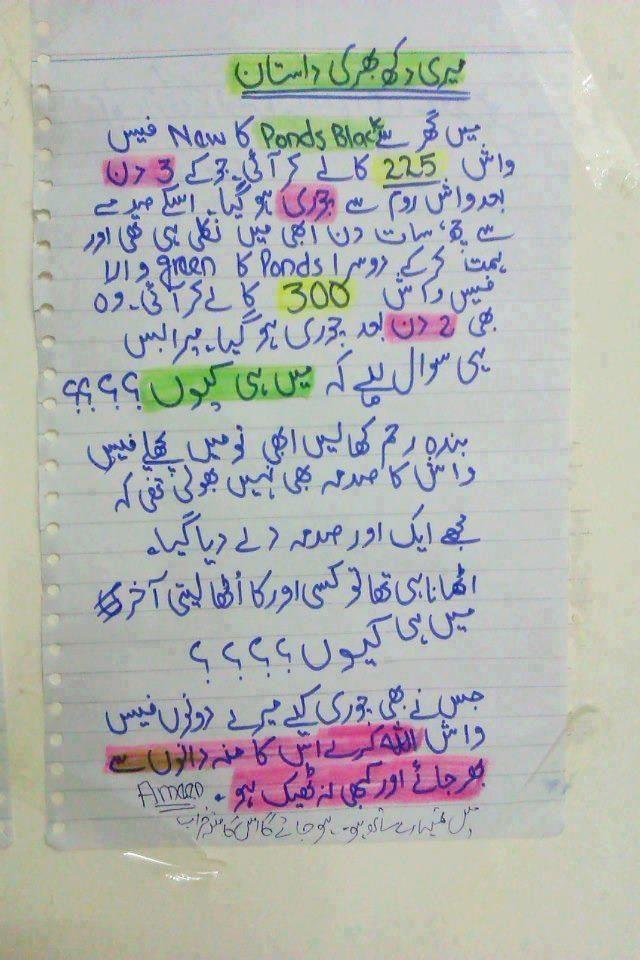 میری دکھ بھری داستان
میں گھر سے Ponds Black کا New فیس
واش 225 کا لے کر آئی۔ جو کے 3 دن
بعد واش روم سے چوری ہو گیا۔ اسکے صدمے
سے چھ، سات دن ابھی میں نکلی ہی تھی اور
ہمت کر کے دوسرا Ponds کا green والا
فیس واش 300 کا لے کر آئی۔ وہ
بھی 2 دن بعد چوری ہو گیا۔ میرا بس
یہی سوال ہے کہ میں ہی کیوں ؟؟؟؟
بندہ رحم کھا لیں ابھی تو میں پہلے فیس
واش کا صدمہ بھی نہیں بھولی تھی کہ
مجھے ایک اور صدمہ دے دیا گیا۔
اٹھانا ہی تھا تو کسی اور کا اُٹھا لیتی آخر
میں ہی کیوں ؟؟؟؟
جس نے بھی چوری کیے میرے دونوں فیس
واش اللہ کرے اس کا منہ دانوں سے
بھر جائے اور کبھی نہ ٹھیک ہو۔
Ameen
میں تمہارے ساتھ ہوں۔ ہو جائے گا اس کا منہ خراب